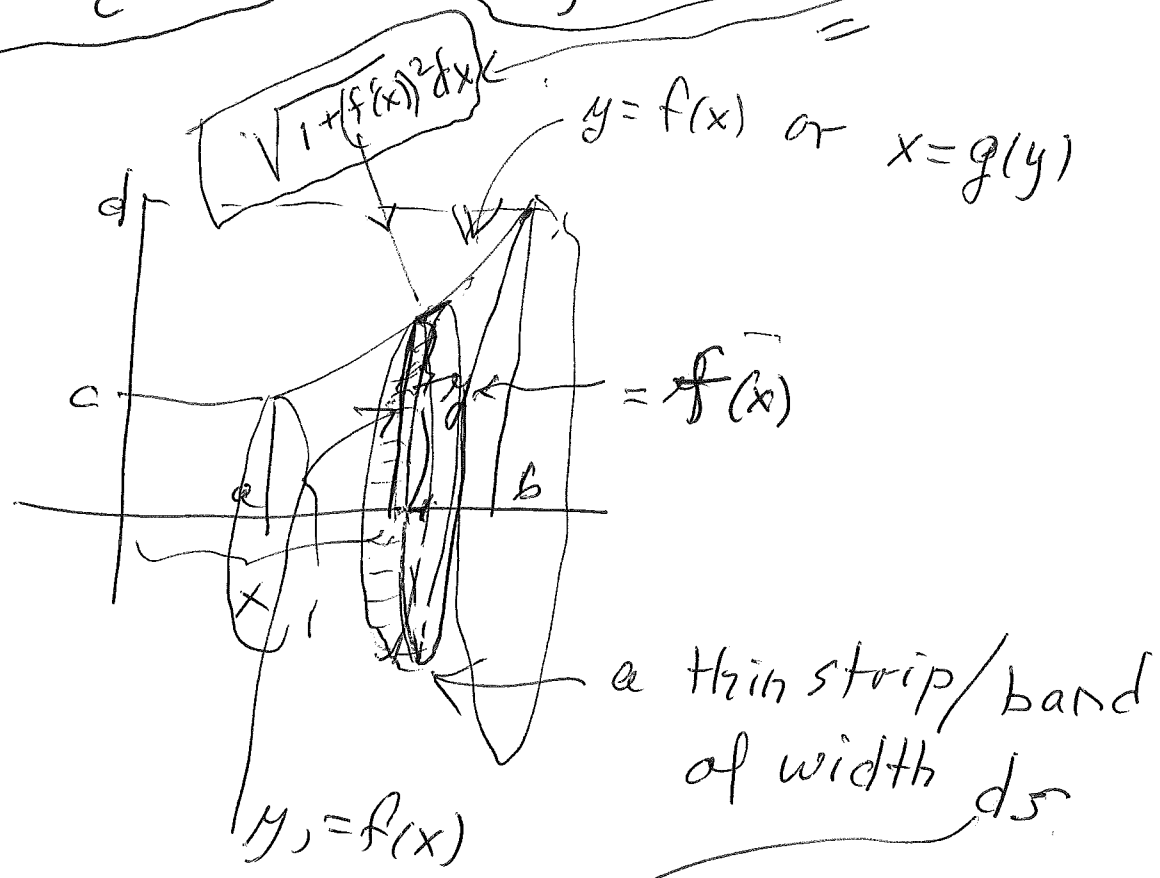 √1+(f'(x))² dx
y = f(x) or x = g(y)
d
c
y = f(x)
a
b
x
a thin strip/band
of width ds
y, = f(x)